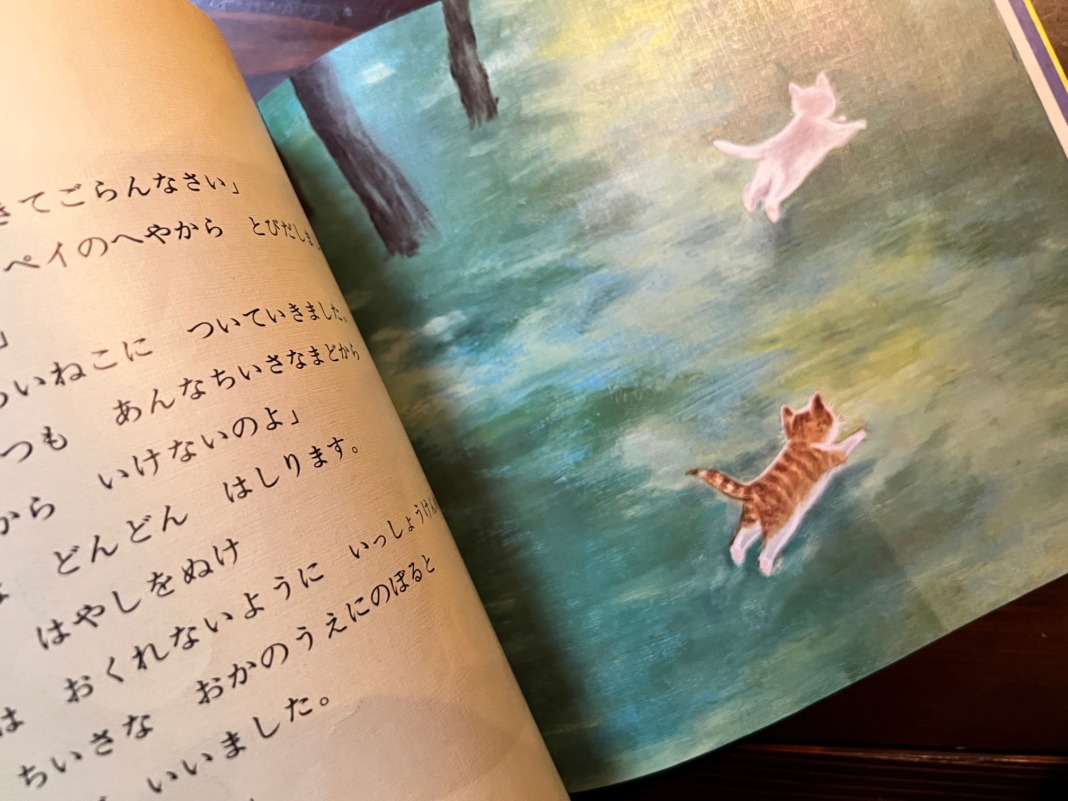 てごらんなさい」
ペイのへやから とびだしま
」
いねこに ついていきました。
つも あんなちいさなまどから
から いけないのよ」
どんどん はしります。
はやしをぬけ
は おくれないように いっしょうけん
ちいさな おかのうえにのぼると
いいました。